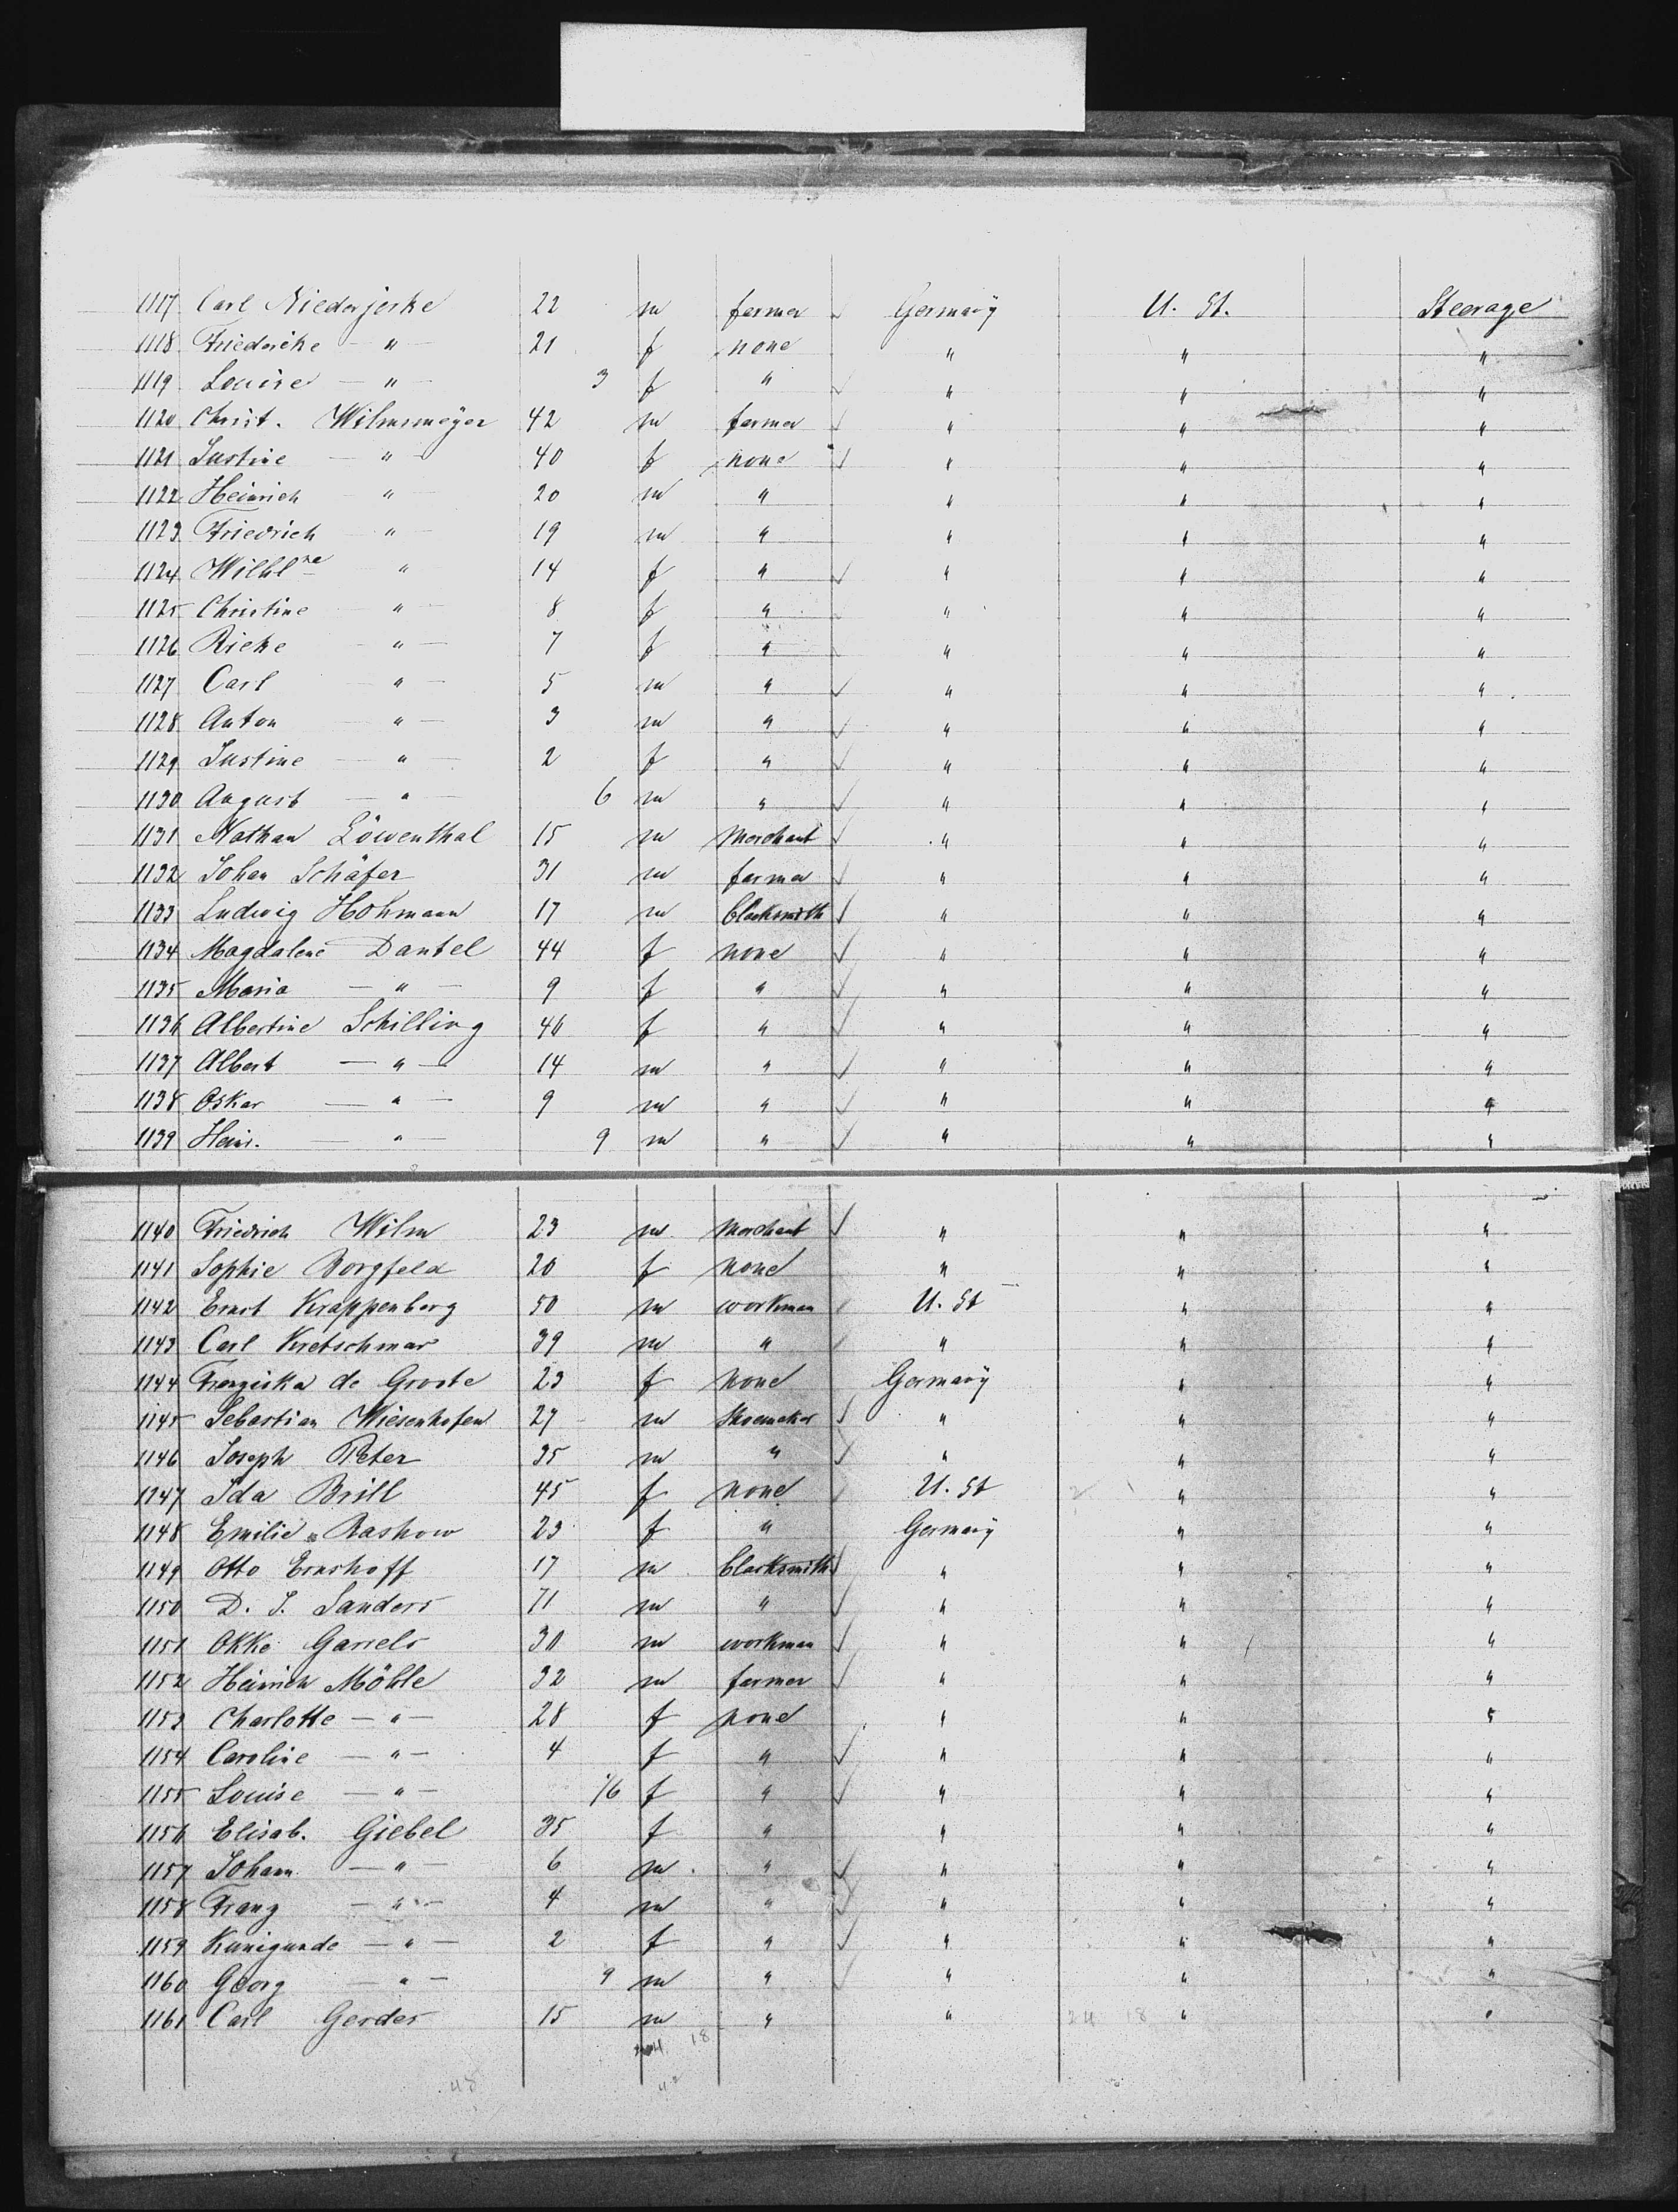 1117 Carl Niederjerke 22 m farmer Germany U. St. Steerage
1118 Friedericke — " — 21 f none " " "
1119 Louise — " — 3 f " " " "
1120 Christ. Wilmsmeyer 42 m farmer " " "
1121 Justine — " — 40 f none " " "
1122 Heinrich — " — 20 m " " " "
1123 Friedrich — " — 19 m " " " "
1124 Wilhl^ne " 14 f " " " "
1125 Christine — " — 8 f " " " "
1126 Rieke — " — 7 f " " " "
1127 Carl — " — 5 m " " " "
1128 Anton — " — 3 m " " " "
1129 Justine — " — 2 f " " " "
1130 August — " — 6 m " " " "
1131 Nathan Löwenthal 15 m Merchant " " "
1132 Johan Schäfer 31 m farmer " " "
1133 Ludwig Hohmann 17 m Blacksmith " " "
1134 Magdalene Dantel 44 f none " " "
1135 Maria — " — 9 f " " " "
1136 Albertine Schilling 46 f " " " "
1137 Albert — " — 14 m " " " "
1138 Oskar — " — 9 m " " " "
1139 Heinr. — " — 9 m " " " "
1140 Friedrich Wilm 23 m Merchant " " "
1141 Sophie Borgfeld 20 f none " " "
1142 Ernst Krappenberg 50 m workman U. St " "
1143 Carl Kretschmar 39 m " " " "
1144 Franziska de Groote 23 f none Germany " "
1145 Sebastian Wiesenhofen 27 m Shoemaker " " "
1146 Joseph Peter 35 m " " " "
1147 Ida Brill 45 f none U. St " "
1148 Emilie Rashow 23 f " Germany " "
1149 Otto Ernshoff 17 m Blacksmith " " "
1150 D. J. Sanders 71 m " " " "
1151 Okke Garrels 30 m workman " " "
1152 Heinrich Möhle 32 m farmer " " "
1153 Charlotte — " — 28 f none " " "
1154 Caroline — " — 4 f " " " "
1155 Louise — " — /6 f " " " "
1156 Elisab. Giebel 35 f " " " "
1157 Johann — " — 6 m " " " "
1158 Franz — " — 4 m " " " "
1159 Kunigunde — " — 2 f " " " "
1160 Georg — " — 9 m " " " "
1161 Carl Gerdes 15 m " " 24 18 " "
18
48 42